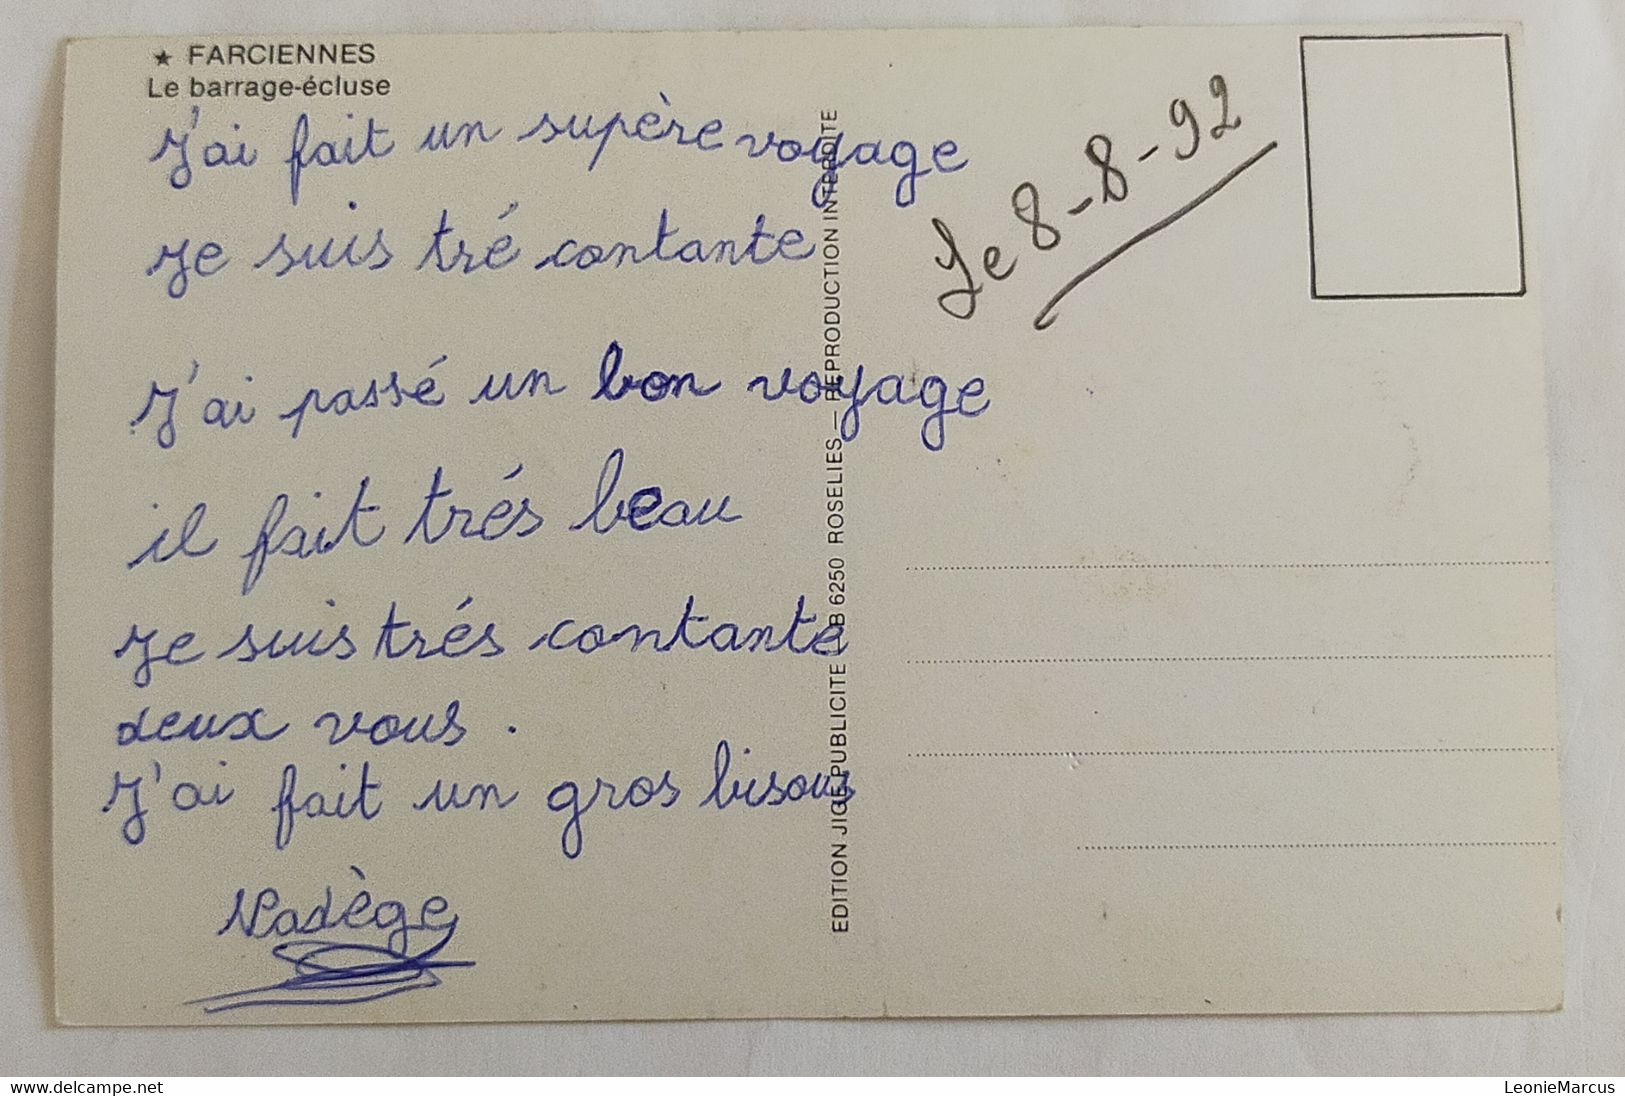 ★ FARCIENNES
Le barrage-écluse
J'ai fait un supère voyage
Je suis tré contante
J'ai passé un bon voyage
il fait trés beau
Je suis trés contante
deux vous.
J'ai fait un gros bisous
Nadège
EDITION JIGE PUBLICITE B 6250 ROSELIES — REPRODUCTION INTERDITE
Le 8-8-92
delcampe.net
LeonieMarcus